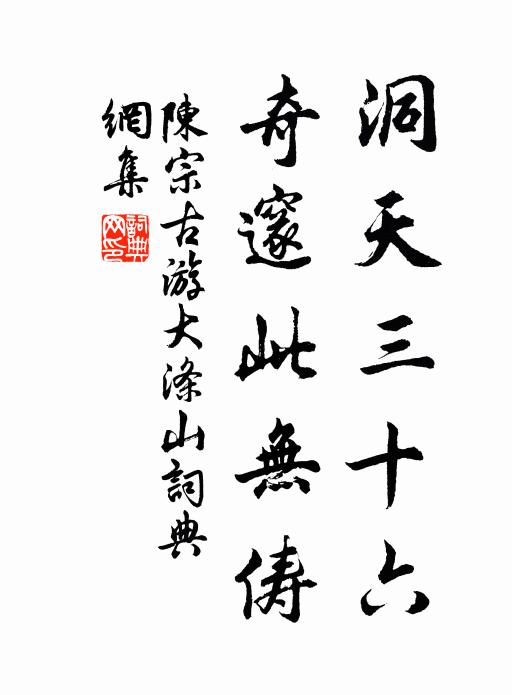 洞天三十六
奇邃此無儔
陳宗古游大滌山詞典
網集
詞典
网印